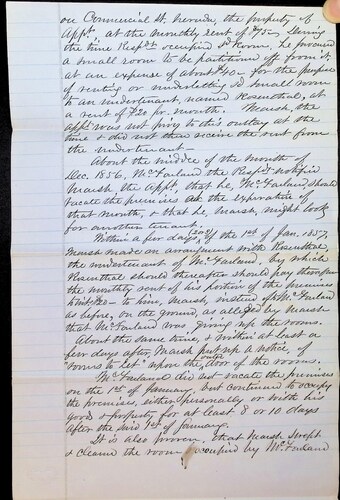 on Commercial St, Nevada, the property of
Applt, at the monthly rent of $75. During
the time Respdt occupied sd Rooms, he procured
a small room to be partitioned off from it,
at an expense of about $40 - for the purpose
of renting or underletting sd small room
to an undertenant, named Rosenthal, at
a rent of $20 pr. month. Marsh, the
applt was not privy to this outlay at the
time & did not then receive the rent from
the undertenant -
About the middle of the month of
Dec. 1856, McFarland the Respt notified
Marsh the Applt, that he, McFarland, should
vacate the premises at the expiration of
that month, & that he, Marsh, might look
for another tenant.
Within a few days of the 1st of Jan. 1857,
Marsh made an arrangement with Rosenthal,
the undertenant of McFarland, by which
Rosenthal should thereafter should pay
the monthly rent of his portion of the premises
to him, Marsh, instead of McFarland
as before, on the ground, as alleged by Marsh
that McFarland was giving up the rooms.
About the same time, & within at least a
few days after, Marsh put up a notice, of
"rooms to let" upon the outer door of the rooms.
McFarland did not vacate the premises
on the 1st of January, but continued to occupy
the premises, either personally or with his
goods & property for at least 8 or 10 days
after the said 1st of January.
It is also proven, that Marsh swept
& cleaned the room occupied by McFarland